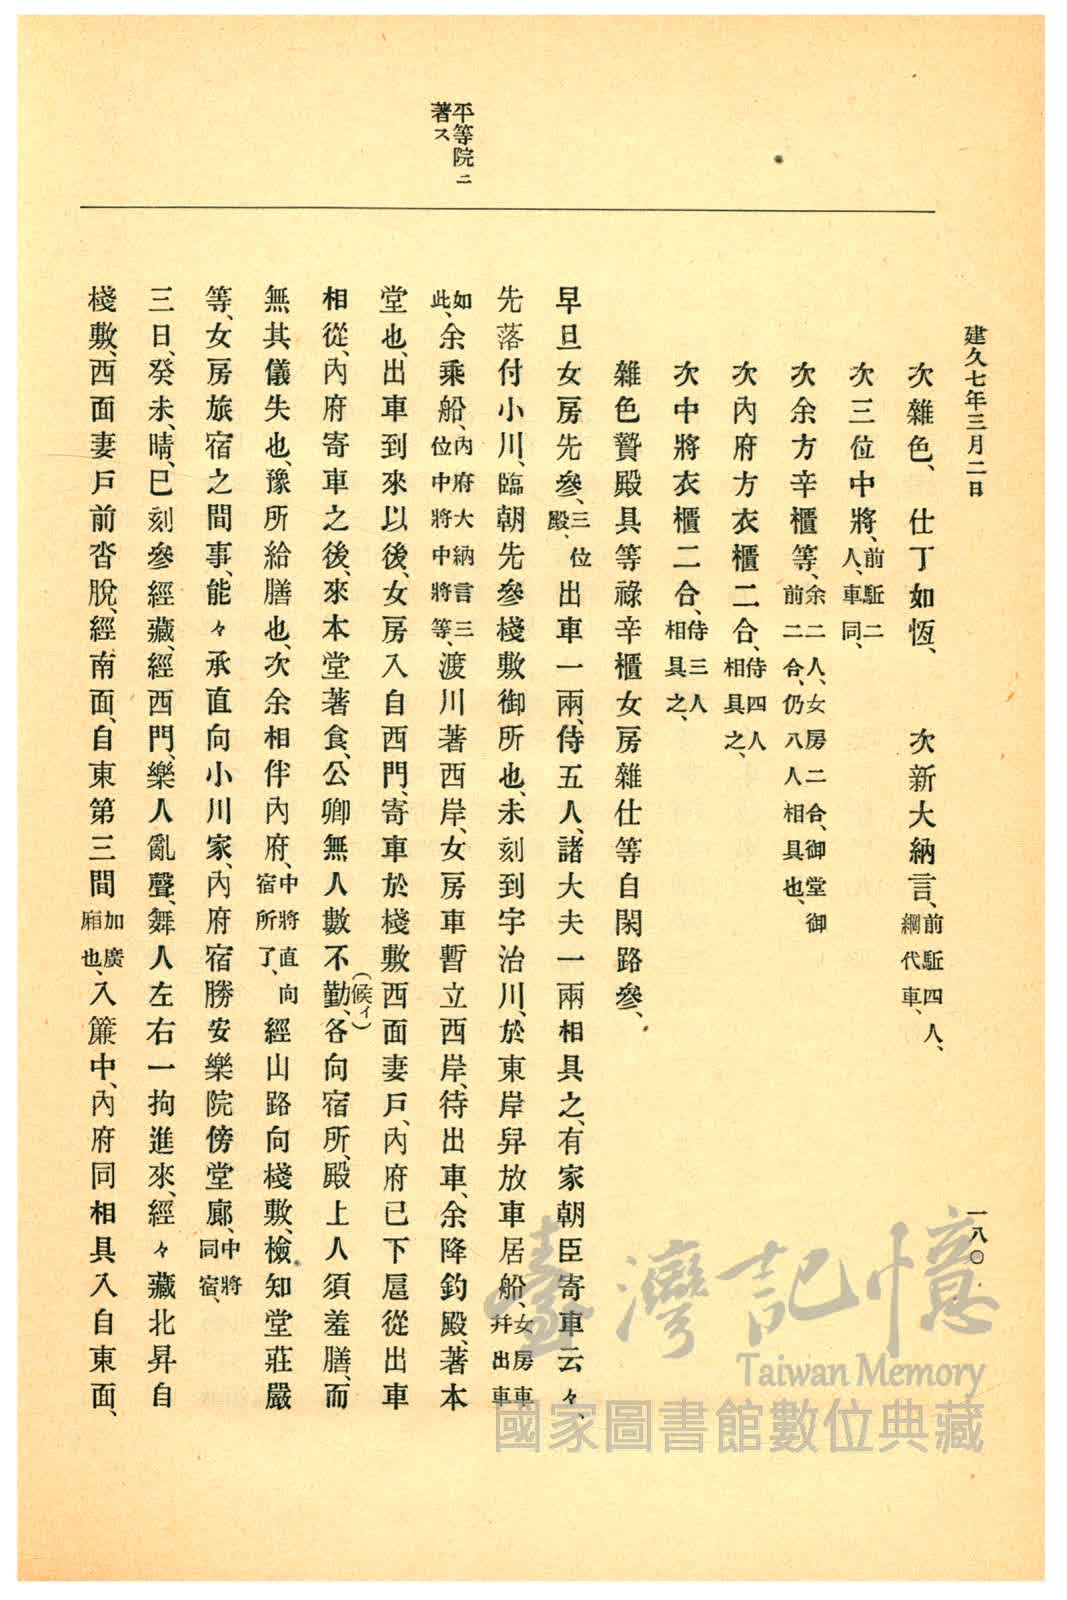 建久七年三月二日
一八〇
平等院ニ
著ス
次雜色、仕丁如恆、　次新大納言、前駈四人、網代車、
次三位中將、前駈二人、車同、
次余方辛櫃等、余二人、女房二合、御堂御前二合、仍八人相具也、
次內府方衣櫃二合、侍四人相具之、
次中將衣櫃二合、侍三人相具之、
雜色贄殿具等祿辛櫃女房雜仕等自閑路參、
早旦女房先參、三位殿、出車一兩、侍五人、諸大夫一兩相具之、有家朝臣寄車云々、
先落付小川、臨朝先參棧敷御所也、未刻到宇治川、於東岸舁放車居船、女房車幷出車
如此、余乘船、內府大納言三位中將中將等、渡川著西岸、女房車暫立西岸、待出車、余降釣殿、著本
堂也、出車到來以後、女房入自西門、寄車於棧敷西面妻戶、內府已下扈從出車
相從、內府寄車之後、來本堂著食、公卿無人數不勤、(候イ)各向宿所、殿上人須羞膳、而
無其儀失也、豫所給膳也、次余相伴內府、中將直向宿所了、經山路向棧敷、檢知堂莊嚴
等、女房旅宿之間事、能々承直向小川家、內府宿勝安樂院傍堂廊、中將同宿、
三日、癸未、晴、巳刻參經藏、經西門、樂人亂聲、舞人左右一拘進來、經々藏北昇自
棧敷、西面妻戶前沓脫、經南面、自東第三間加廣廂也、入簾中、內府同相具入自東面、
臺灣記憶
Taiwan Memory
國家圖書館數位典藏